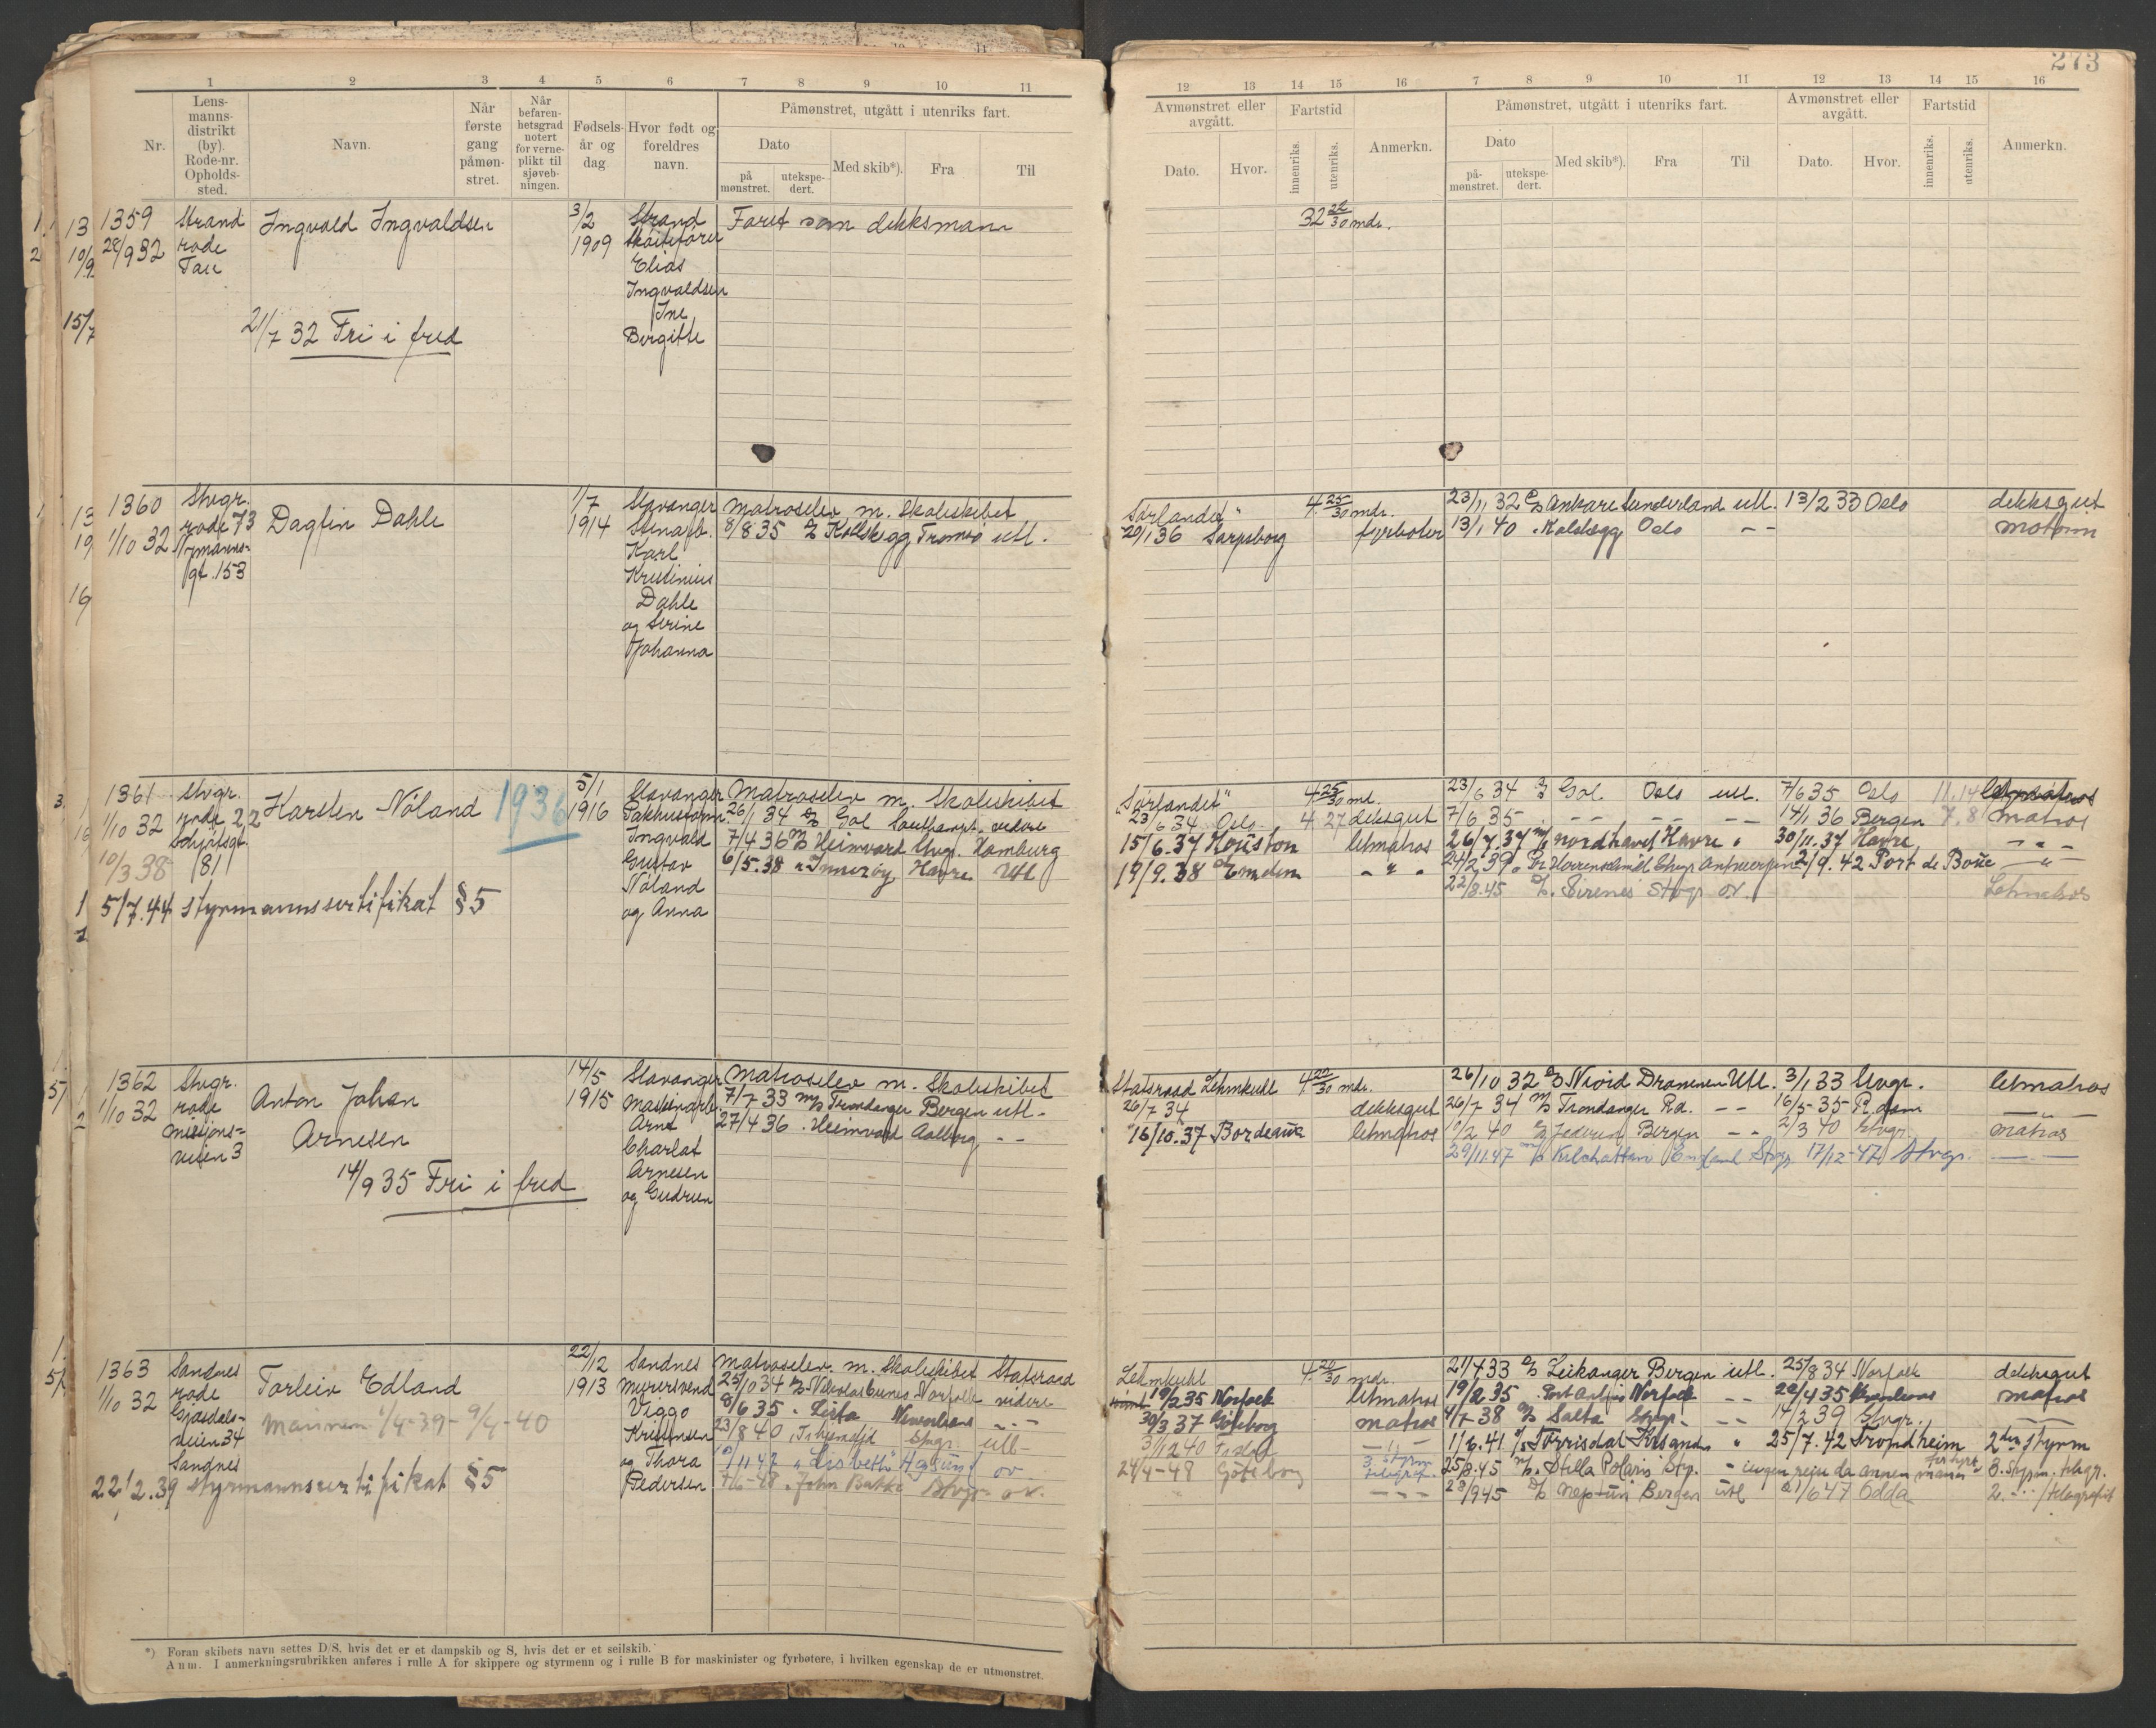 273
1 2 3 4 5 6 7 8 9 10 11
Lens-
manns-
distrikt
(by).
Rode-nr.
Opholds-
sted.
Nr.
Navn.
Når
første
gang
påmøn-
stret.
Når
befaren-
hetsgrad
notert
for verne-
plikt til
sjøveb-
ningen.
Fødsels-
år og
dag
Hvor født og
foreldres
navn.
Påmønstret, utgått i utenriks fart.
Dato
på
mønstret.
utekspe-
dert.
Med skib*).
Fra
Til
12 13 14 15 16 7 8 9 10 11 12 13 14 15 16
Avmønstret eller
avgått.
Dato.
Hvor.
Fartstid
innenriks.
utenriks.
Anmerkn.
Påmønstret, utgått i utenriks fart.
Dato
på-
mønstret.
utekspe-
dert.
Med skib*).
Fra
Til
Avmønstret eller
avgått.
Dato.
Hvor.
Fartstid
innenriks.
utenriks.
Anmerkn.
1359
28/9 32
Strand
rode
Tau
Ingvald Ingvaldsen
21/7 32 Fri i fred
3/2
1909
Strand
Skøitefører
Elias
Ingvaldsen
Ine
Bergitte
Faret som dekksmann
32 22/30 mdr.
1360
1/10 32
Stvgr.
rode 73
gt. 153
Dagfin Dahle
1/7
1914
Stavanger
Karl
Kristinius
Dahle
og Serine
Johanna
Matroselev m. Skoleskibet
8/8 35 Kollskegg Tromsø utl.
Sørlandet"
4 25/30 mdr.
20/1 36 Sarpsborg fyrbøter
23/11 32 Ankare Sunderland utl. 13/2 33 Oslo dekksgut
13/1 40 Oslo — — motorm
1361
1/10 32
10/3 38
Stvgr.
rode 22
Schjøtsgt.
81
Karsten Nåland
1936
5/7.44 styrmannssertifikat §5
5/1
1916
Stavanger
Pakkusform.
Ingvald
Gustav
Nåland
og Anna
Matroselev m. Skoleskibet
26/1 34 Gol Southampt. videre
7/4 36 Heimvard Stvgr. Hamburg
6/5.38 " Innerøy Havre Utl
"Sørlandet" 4 25/30 md.
23/6 34 Oslo 4 27 dekksgut
15/6.37 Houston letmatros
19/9.38 Emden " " "
23/6 34 Gol Oslo utl. 7/6 35 Oslo 11.14
7/6 35 — — — — 14/1 36 Bergen 7.8 matros
26/7.37 nordhavet Havre " 30/11.37 Havre — " —
24/2 39 Stvgr. Antwerpen 2/9.42 Port de Boüc — " —
22/8.45 Sirenes Stvgr ov. Letmatros
1362
1/10 32
Stvgr.
rode
Misjons-
veien 3
Anton Johan
Arnesen
14/9 35 Fri i fred
14/5
1915
Stavanger
Maskinarb.
Arne
Charlot
Arnesen
og Gudrun
Matroselev m. Skoleskibet
7/7 33 Trondanger Bergen utl.
27/4 36 . Heimvard Aalborg — —
Statsraad Lehmkuhl 4 22/30 mdr.
26/7 34 dekksgut
16/10.37 Bordeaux letmatros
26/10 32 Njord Drammen Utl. 3/1 33 Stvgr. letmatros
26/7 34 Trondanger Rd. — — 16/5-35 R.dam — " —
Jederen Bergen — — 2/3 40 Stvgr. matros
29/11.47 Kilchattan England Stvgr 17/12-47 Stvgr. — —
1363
1/10 32
Sandnes
rode
Gjesdals-
veien 34
Sandnes
Torleiv Edland
Marinen 1/4-39 - 9/4-40
22/2.39 Styrmannssertifikat §5
22/12
1913
Sandnes
Murersvend
Viggo
Kristensen
og Thora
Pedersen
Matroselev m. Skoleskibet Statsraad
25/10 34 Norfolk videre
8/6 35 . Lista
23/8 40 Stvgr. utl-
"Lisbeth" ov
7/6-48 . John Bakke Stvgr ov.
Lehmkuhl 4 20/30 mdr.
19/2 35 Norfolk letmatros
30/3 37 Göteborg matros
24/4-48 Göteborg
21/4 33 Leikanger Bergen utl. 25/8 34 Norfolk dekksgut
19/2.35 Norfolk — — 22/4 35 matros
4/7 38 Salta Stvgr. — — 14/2 39 Stvgr. — —
1/6.41 Torrisdal Krsand. " 25/7.42 Trondheim 2den styrm
25/8.45 Stella Polaris Stvg. - ingen reise da annen mann 3. Styrm. telegr.
28/9 45 Neptun Bergen utl 21/6 47 Odda 2. — " — /telegrafist
*) Foran skibets navn settes D/S, hvis det er et dampskib og S, hvis det er et seilskib.
Anm. I anmerkningsrubrikken anføres i rulle A for skippere og styrmenn og i rulle B for maskinister og fyrbøtere, i hvilken egenskap de er utmønstret.